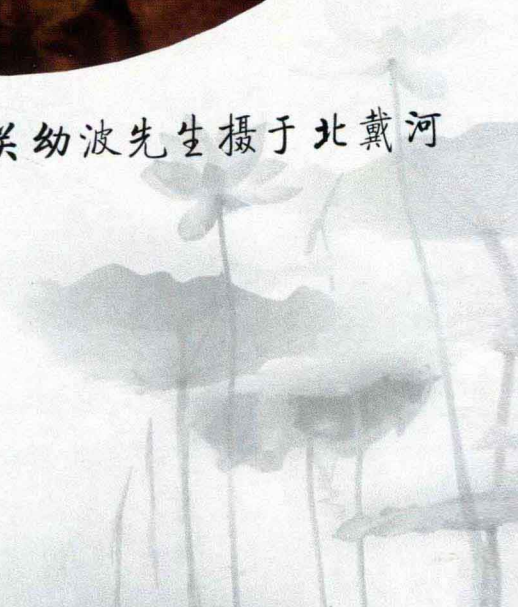 关幼波先生摄于北戴河